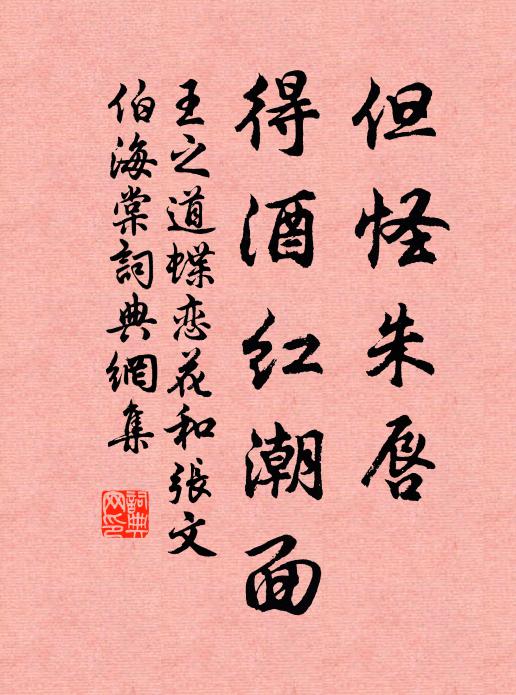 但怪朱唇
得酒红潮面
王之道蝶恋花和張文
伯海棠詞典網集
詞典
网印